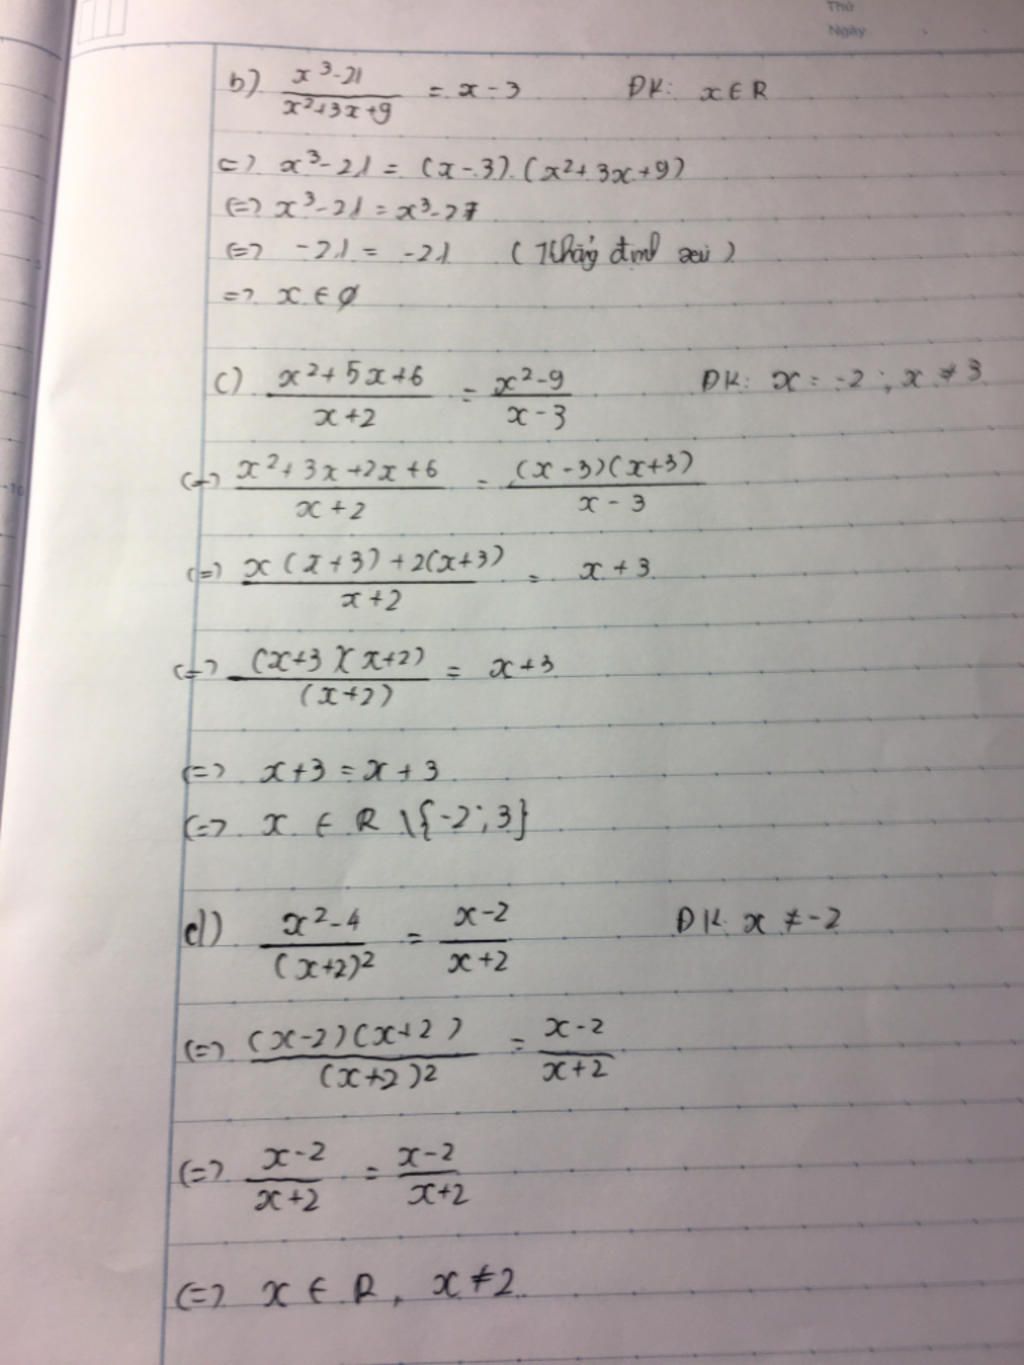 Thứ
Ngày
b) (x³-21)/(x²+3x+9) = x-3 ĐK: x∈R
=> x³-21 = (x-3).(x²+3x+9)
<=> x³-21 = x³-27
<=> -21 = -21 (
=> x ∈ ∅
c) (x²+5x+6)/(x+2) = (x²-9)/(x-3) ĐK: x = -2 ; x ≠ 3
<=> (x²+3x+2x+6)/(x+2) = ((x-3)(x+3))/(x-3)
<=> (x(x+3)+2(x+3))/(x+2) = x+3
<=> ((x+3)(x+2))/((x+2)) = x+3
<=> x+3 = x+3
<=> x ∈ R \{-2;3}
d) (x²-4)/((x+2)²) = (x-2)/(x+2) ĐK x ≠ -2
<=> ((x-2)(x+2))/((x+2)²) = (x-2)/(x+2)
<=> (x-2)/(x+2) = (x-2)/(x+2)
<=> x ∈ R, x ≠ 2